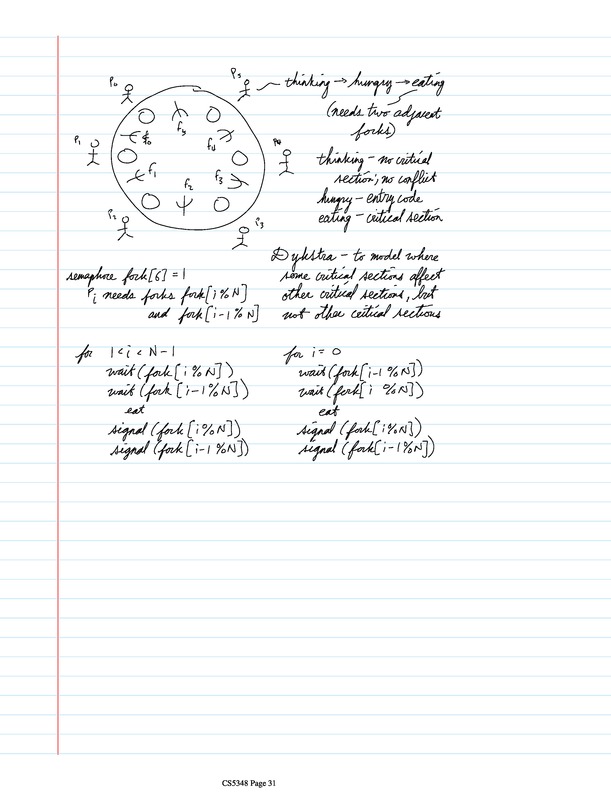 P0
P5
thinking → hungry → eating
(needs two adjacent
forks)
P1
f0
f5
f4
f1
f2
f3
P4
P2
P3
thinking – no critical
section; no conflict
hungry – entry code
eating – critical section
Dykstra – to model where
some critical sections affect
other critical sections, but
not other critical sections
semaphore fork[6] = 1
Pi needs forks fork[i%N]
and fork[i-1%N]
for 1<i<N-1
wait(fork[i%N])
wait(fork[i-1%N])
eat
signal(fork[i%N])
signal(fork[i-1%N])
for i=0
wait(fork[i-1%N])
wait(fork[i %N])
eat
signal(fork[i%N])
signal(fork[i-1%N])
CS5348 Page 31